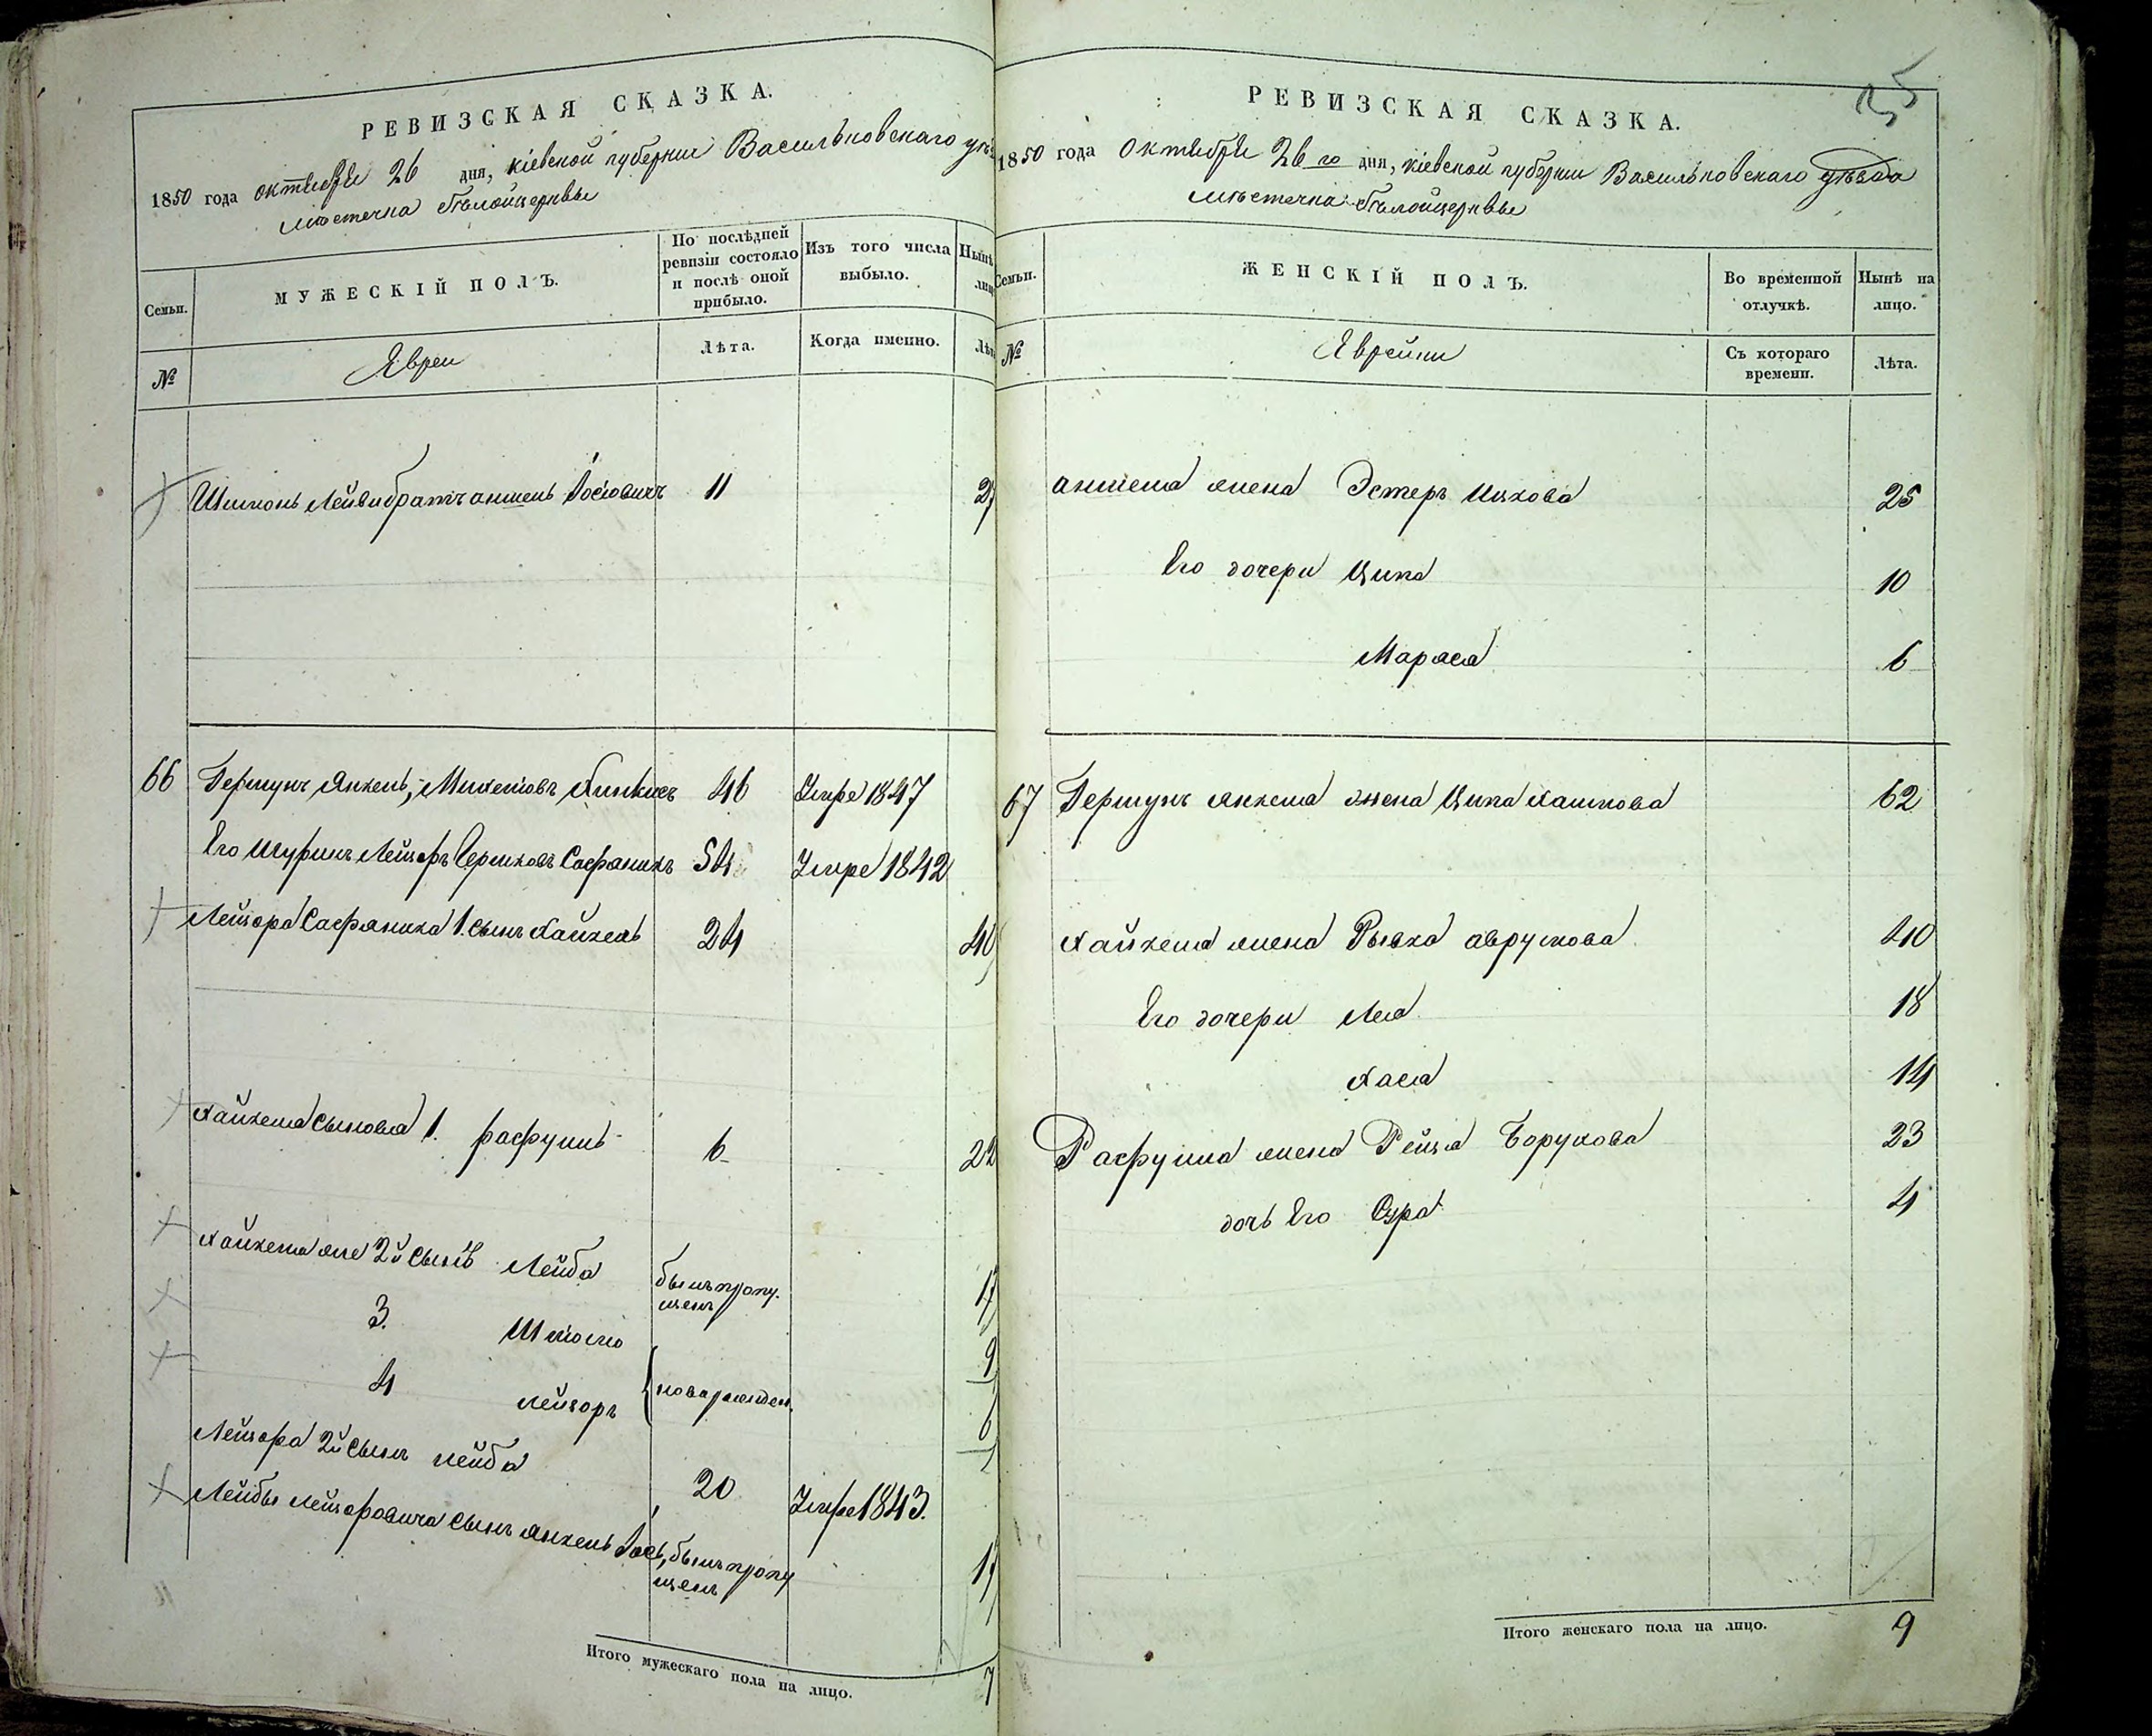 РЕВИЗСКАЯ СКАЗКА.
1850 года октября 26 дня, кіевской губерніи Васильковскаго
мѣстечка бѣлойцерквы
Семьи.
МУЖЕСКІЙ ПОЛЪ.
По послѣдней ревизіи состояло и послѣ оной прибыло.
Изъ того числа выбыло.
Нынѣ
№
Евреи
Лѣта.
Когда именно.
Шимонъ Лейви братъ аншель Іосіовичъ 11 27
66 Гершунъ Янкель, Михелiовъ 46 Умре 1847
Его Шуринъ Лейзоръ 54 Умре 1842
Лейзора 1. сынъ Хайкель 24 40
Хайкеля сыновья 1. рафуилъ 6 22
Хайкеля же 2й сынъ Лейба былъ пропу.
щенъ 17
3. Шліомо 9
4 лейзоръ новорожден. 6
Лейзора 2й сынъ лейба 20 Умре 1843.
Лейбы лейзоровича сынъ янкель Іось, былъ пропу
щенъ 17
Итого мужескаго пола на лицо. 7
35
РЕВИЗСКАЯ СКАЗКА.
1850 года октября 26 го дня, кіевской губерніи Васильковскаго уѣзда
мѣстечка бѣлойцерквы
Семьи.
ЖЕНСКІЙ ПОЛЪ.
Во временной отлучкѣ.
Нынѣ на лицо.
№
Еврейки
Съ котораго времени.
Лѣта.
аншеля жена Эстеръ Ицкова 25
Его дочери Ципа 10
Маряся 6
67 Гершунъ янкеля жена Ципа 62
хайкеля жена Рывка аврумова 40
Его дочери Лея 18
хася 14
Рафуила жена Рейзя Борухова 23
дочь Его Сура 4
Итого женскаго пола на лицо. 9